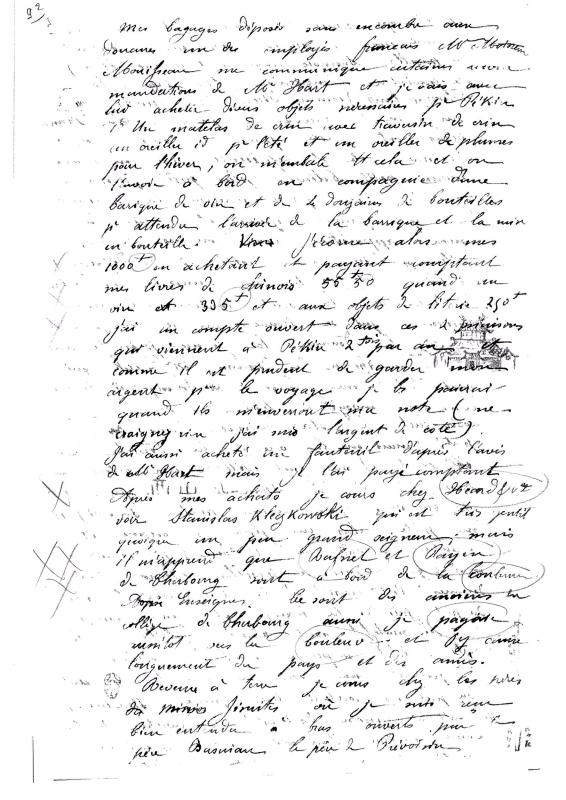 92
Mes bagages déposés sans encombre aux
douanes un des employés français Mr
me communique certaines recom
mandations de Mr Hart et je vais avec
lui acheter divers objets nécessaires pr Pékin
1° Un matelas de crin avec traversin de crin
un oreiller id pr l'été et un oreiller de plumes
pour l'hiver, on m'emballe tt cela et on
l'envoie à bord en compagnie d'une
barique de vin et de 4 douzaines de bouteilles
pr attendre l'arrivée de la barrique et la mise
en bouteille. J'écorne alors mes
1000 f en achetant et payant comptant
mes livres de chinois 55 f 50 quand au
vin et 335 f et aux objets de literie 250 f
j'ai un compte ouvert dans ces 2 maisons
qui viennent à Pékin 2 par an et
comme il est prudent de garder mon
argent pr le voyage je les paierai
quand ils m'enverront ma note (ne
craignez rien j'ai mis l'argent de côté).
J'ai aussi acheté un fauteuil d'après l'avis
de Mr Hart mais je l'ai payé comptant
Après mes achats je cours chez Heard
voir Stanislas Kleczkowski qui est très gentil
quoique un peu grand seigneur; mais
il m'apprend que et
de Cherbourg sont à bord de la
Enseignes. Ce sont des anciens du
collège de Cherbourg aussi je
vers la et j'y cause
longuement du pays et des amis.
Revenu à terre je cours chez les pères
Jésuites où je suis reçu
bien entendu à bras ouverts par le
père le père de